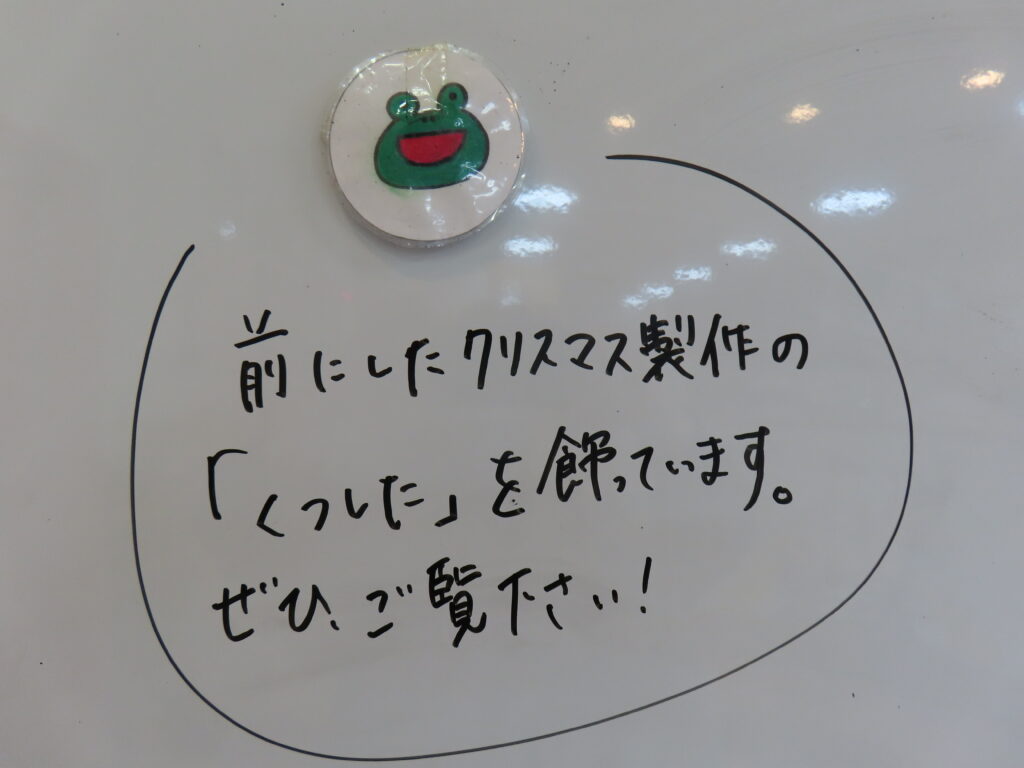 前にしたクリスマス製作の
「くつした」を飾っています。
ぜひ、ご覧下さい!